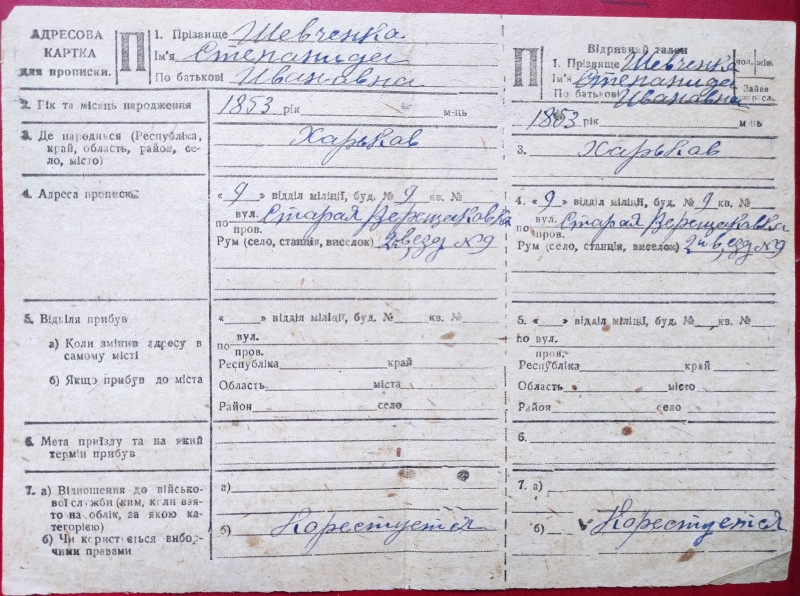 АДРЕСОВА
КАРТКА
для прописки.
П
1. Прізвище Шевченка
Ім'я Степанида
По батькові Ивановна
2. Рік та місяць народження
1853 рік м-нь
3. Де народився (Республіка,
край, область, район, се-
ло, місто)
Харьков
4. Адреса прописки
" 9 " відділ міліції, буд. № 9 кв. №
по вул. Старая
пров.
Рум (село, станція, виселок) №9
5. Відкіля прибув
а) Коли змінив адресу в
самому місті
б) Якщо прибув до міста
" " відділ міліції, буд. № кв. №
по вул.
пров.
Республіка край
Область міста
Район село
6. Мета приїзду та на який
термін прибув
7. а) Відношення до військо-
вої служби (ким, коли взя-
то на облік, за якою ка-
тегорією)
б) Чи користається вибор-
чими правами
а)
б) Користуется
П
Відривний талон
1. Прізвище Шевченка
Ім'я Степанида
По батькові Ивановна
чол. жін.
Зайве
1853 рік м-нь
3. Харьков
4. " 9 " відділ міліції, буд. № 9 кв. №
по вул. Старая
пров.
Рум (село, станція, виселок) №9
5. " " відділ міліції, буд. № кв. №
по вул.
пров.
Республіка край
Область місто
Район село
6.
7. а)
б) Користуется